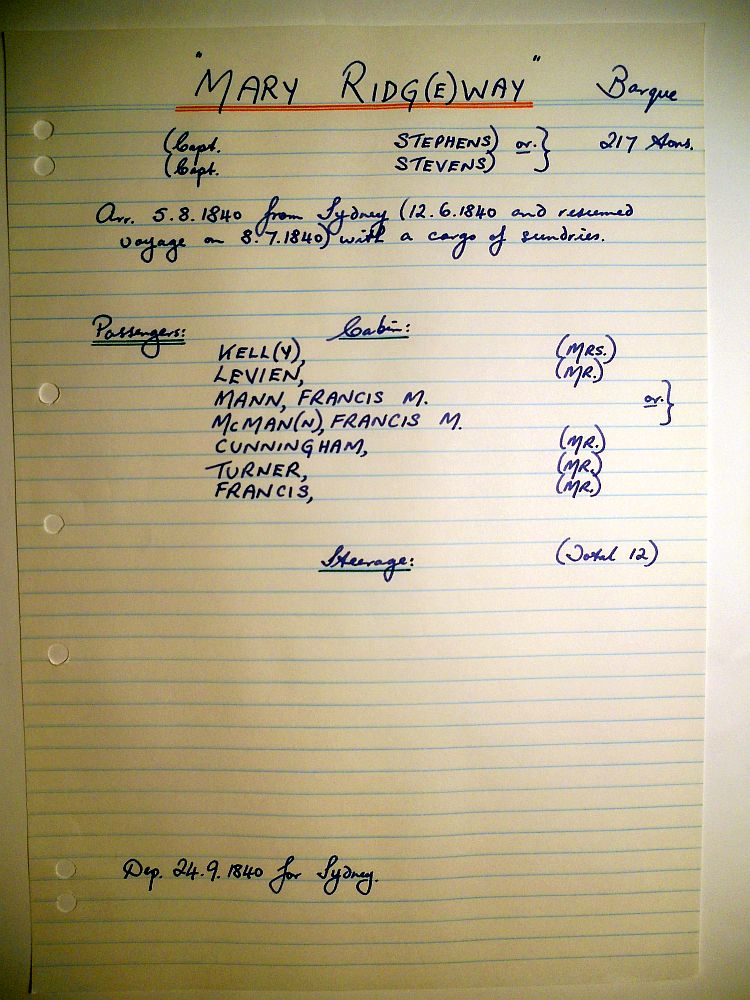 "MARY RIDG(E)WAY" Barque
(Capt. STEPHENS) or.} 217 tons.
(Capt. STEVENS)
Arr. 5.8.1840 from Sydney (12.6.1840 and resumed
voyage on 8.7.1840) with a cargo of sundries.
Passengers: Cabin:
KELL(Y), (MRS.)
LEVIEN, (MR.)
MANN, FRANCIS M. or.}
McMAN(N), FRANCIS M.
CUNNINGHAM, (MR.)
TURNER, (MR.)
FRANCIS, (MR.)
Steerage: (Total 12)
Dep. 24.9.1840 for Sydney.